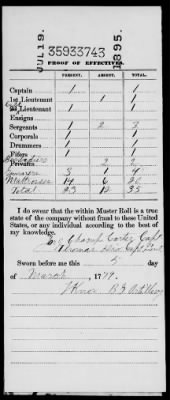 JUL 19. 35933743 1895.
PROOF OF EFFECTIVES.
PRESENT. ABSENT. TOTAL.
Captain 1 1
1st Lieutenant 1 1
2d Lieutenant 1 1
Ensigns
Sergeants 1 2 3
Corporals 1 1
Drummers 1 1
Fifers 1 1
Bombadiers 2 2
Privates
Gunners 3 1 4
Mattrosses 14 6 20
Total 23 12 35
I do swear that the within Muster Roll is a true
state of the company without fraud to these United
States, or any individual according to the best
of my knowledge.
Champ Carter Capt
Thomas Capt Lieut
Sworn before me this 5 day
of March, 1779.
HKnox B G Artillery